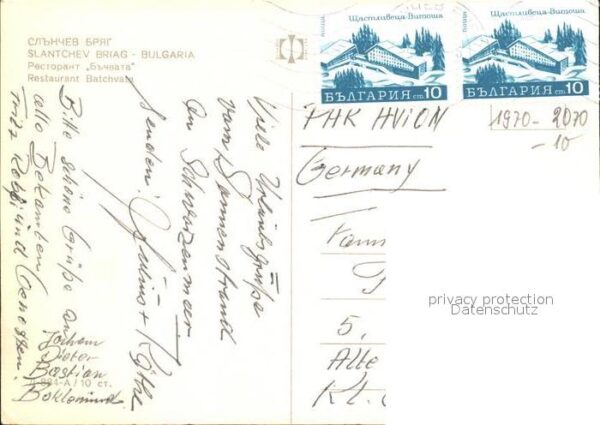 СЛЪНЧЕВ БРЯГ
SLANTCHEV BRIAG - BULGARIA
Ресторант „Бъчвата"
Restaurant Batchvata
Щастливеца-Витоша
ПОЩА
БЪЛГАРИЯ ст 10
Щастливеца-Витоша
ПОЩА
БЪЛГАРИЯ ст 10
PAR AVION
1970-2070
-10
Germany
Fam
5,
Alte
Kr.
privacy protection
Datenschutz
Viele Urlaubsgrüße
vom Sonnenstrand
am Schwarzenmeer
senden Julius + Käthe
Bitte schöne Grüße an
alle Bekannten
und Genossen
Jochem
Dieter
Bastian
/ 10 ст.